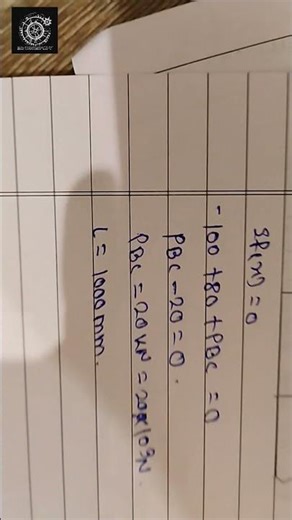 Σf(x) = 0
- 100 + 80 + PBC = 0
PBC - 20 = 0.
PBC = 20 KN = 20x10³N.
L = 1000mm.